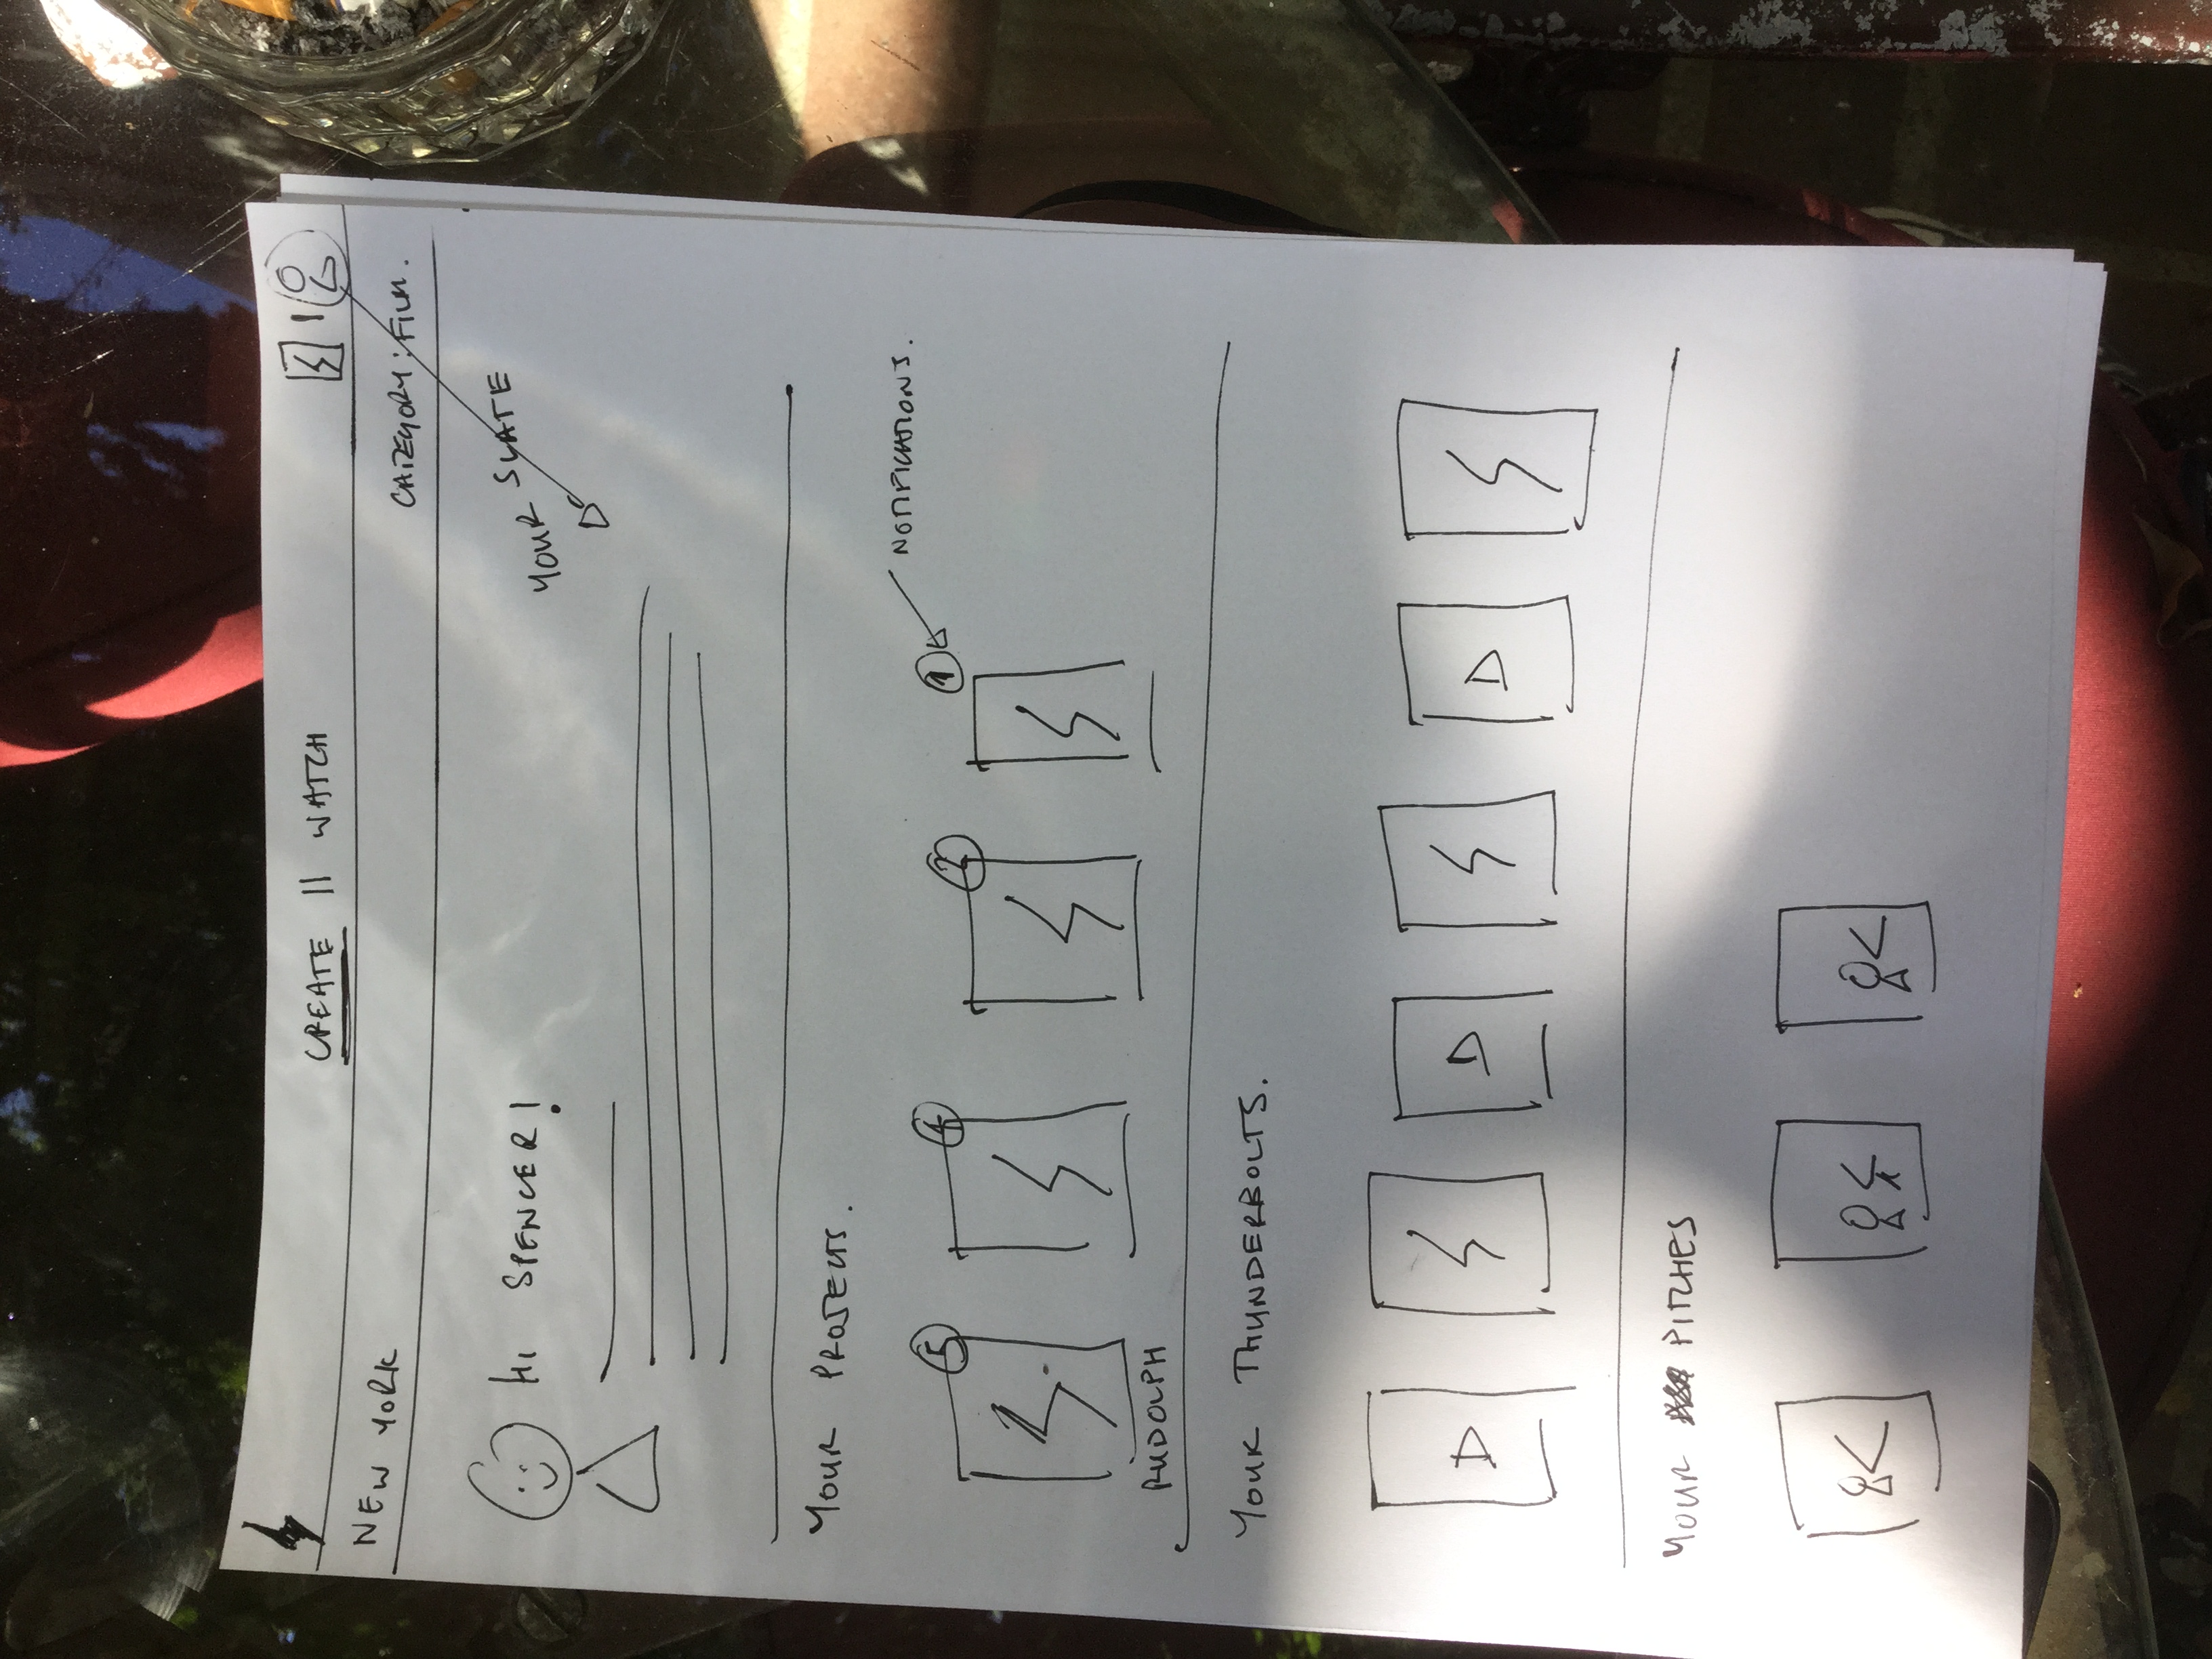 CREATE || WATCH
NEW YORK
CATEGORY: FILM.
HI SPENCER!
YOUR SLATE
YOUR PROJECTS.
NOTIFICATIONS.
5 4 2 1
RUDOLPH
YOUR THUNDERBOLTS.
YOUR PITCHES